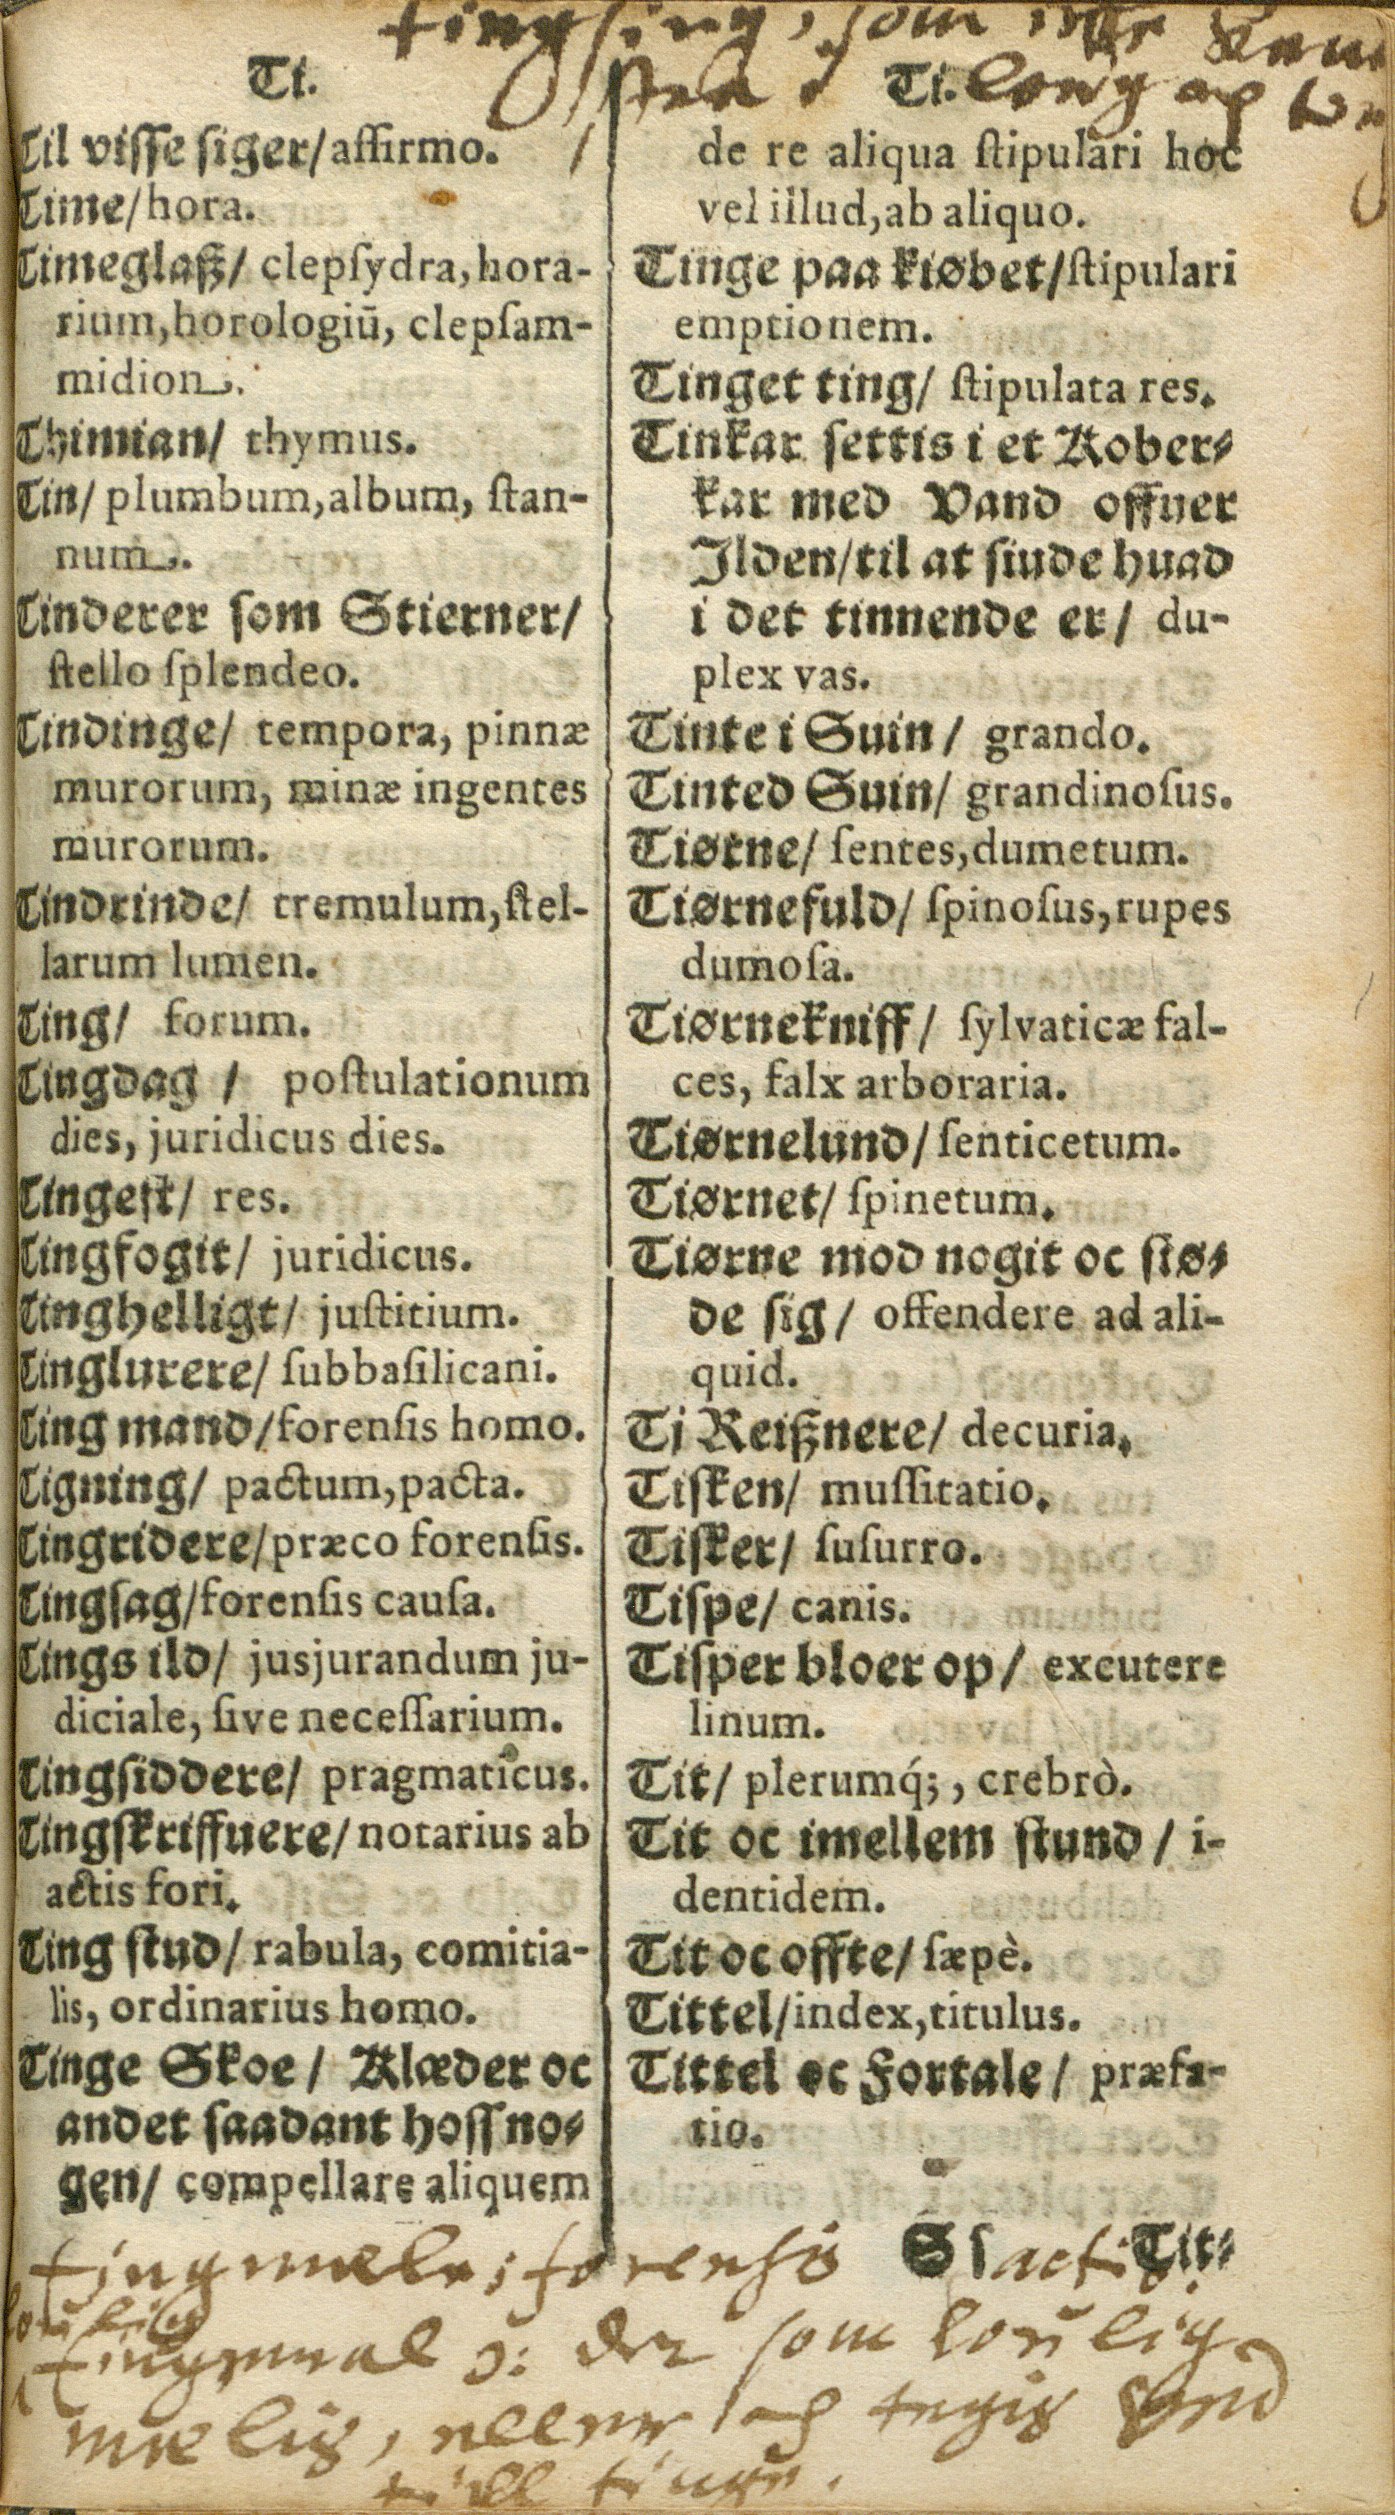 tingsing, som icke
Ti.
Til visse siger/ aſſirmo.
Time/ hora.
Timeglaß/ clepſydra, hora-
rium, horologiū, clepſam-
midion.
Thimian/ thymus.
Tin/ plumbum, album, ſtan-
num.
Tinderer ſom Stierner/
ſtello ſplendeo.
Tindinge/ tempora, pinnæ
murorum, minæ ingentes
murorum.
Tindrinde/ tremulum, ſtel-
larum lumen.
Ting/ forum.
Tingdag / poſtulationum
dies, juridicus dies.
Tingeſt/ res.
Tingfogit/ juridicus.
Tinghelligt/ juſtitium.
Tinglurere/ ſubbaſilicani.
Ting mand/ forenſis homo.
Tigning/ pactum, pacta.
Tingridere/ præco forenſis.
Tingſag/ forenſis cauſa.
Tings ild/ jusjurandum ju-
diciale, ſive neceſſarium.
Tingſiddere/ pragmaticus.
Tingſkriffuere/ notarius ab
actis fori.
Ting ſtud/ rabula, comitia-
lis, ordinarius homo.
Tinge Skoe/ Klæder oc
andet ſaadant hoſſ no-
gen/ compellare aliquem
Ti.
de re aliqua ſtipulari hoc
vel illud, ab aliquo.
Tinge paa kiøbet/ ſtipulari
emptionem.
Tinget ting/ ſtipulata res.
Tinkar ſettis i et Kober-
kar med Vand offuer
Ilden/ til at ſiude huad
i det tinnende er/ du-
plex vas.
Tinte i Suin/ grando.
Tinted Suin/ grandinoſus.
Tiørne/ ſentes, dumetum.
Tiørnefuld/ ſpinoſus, rupes
dumoſa.
Tiørnekniff/ ſylvaticæ fal-
ces, falx arboraria.
Tiørnelund/ ſenticetum.
Tiørnet/ ſpinetum.
Tiørne mod nogit oc ſtø-
de ſig/ offendere ad ali-
quid.
Tj Reißnere/ decuria.
Tiſken/ muſſitatio.
Tiſker/ ſuſurro.
Tiſpe/ canis.
Tiſper bloer op/ excutere
linum.
Tit/ plerumq́;, crebrò.
Tit oc imellem ſtund / i-
dentidem.
Tit oc offte/ ſæpè.
Tittel/ index, titulus.
Tittel oc Fortale/ præfa-
tio.
Sſ Tit-
forensis
som
till tinge.